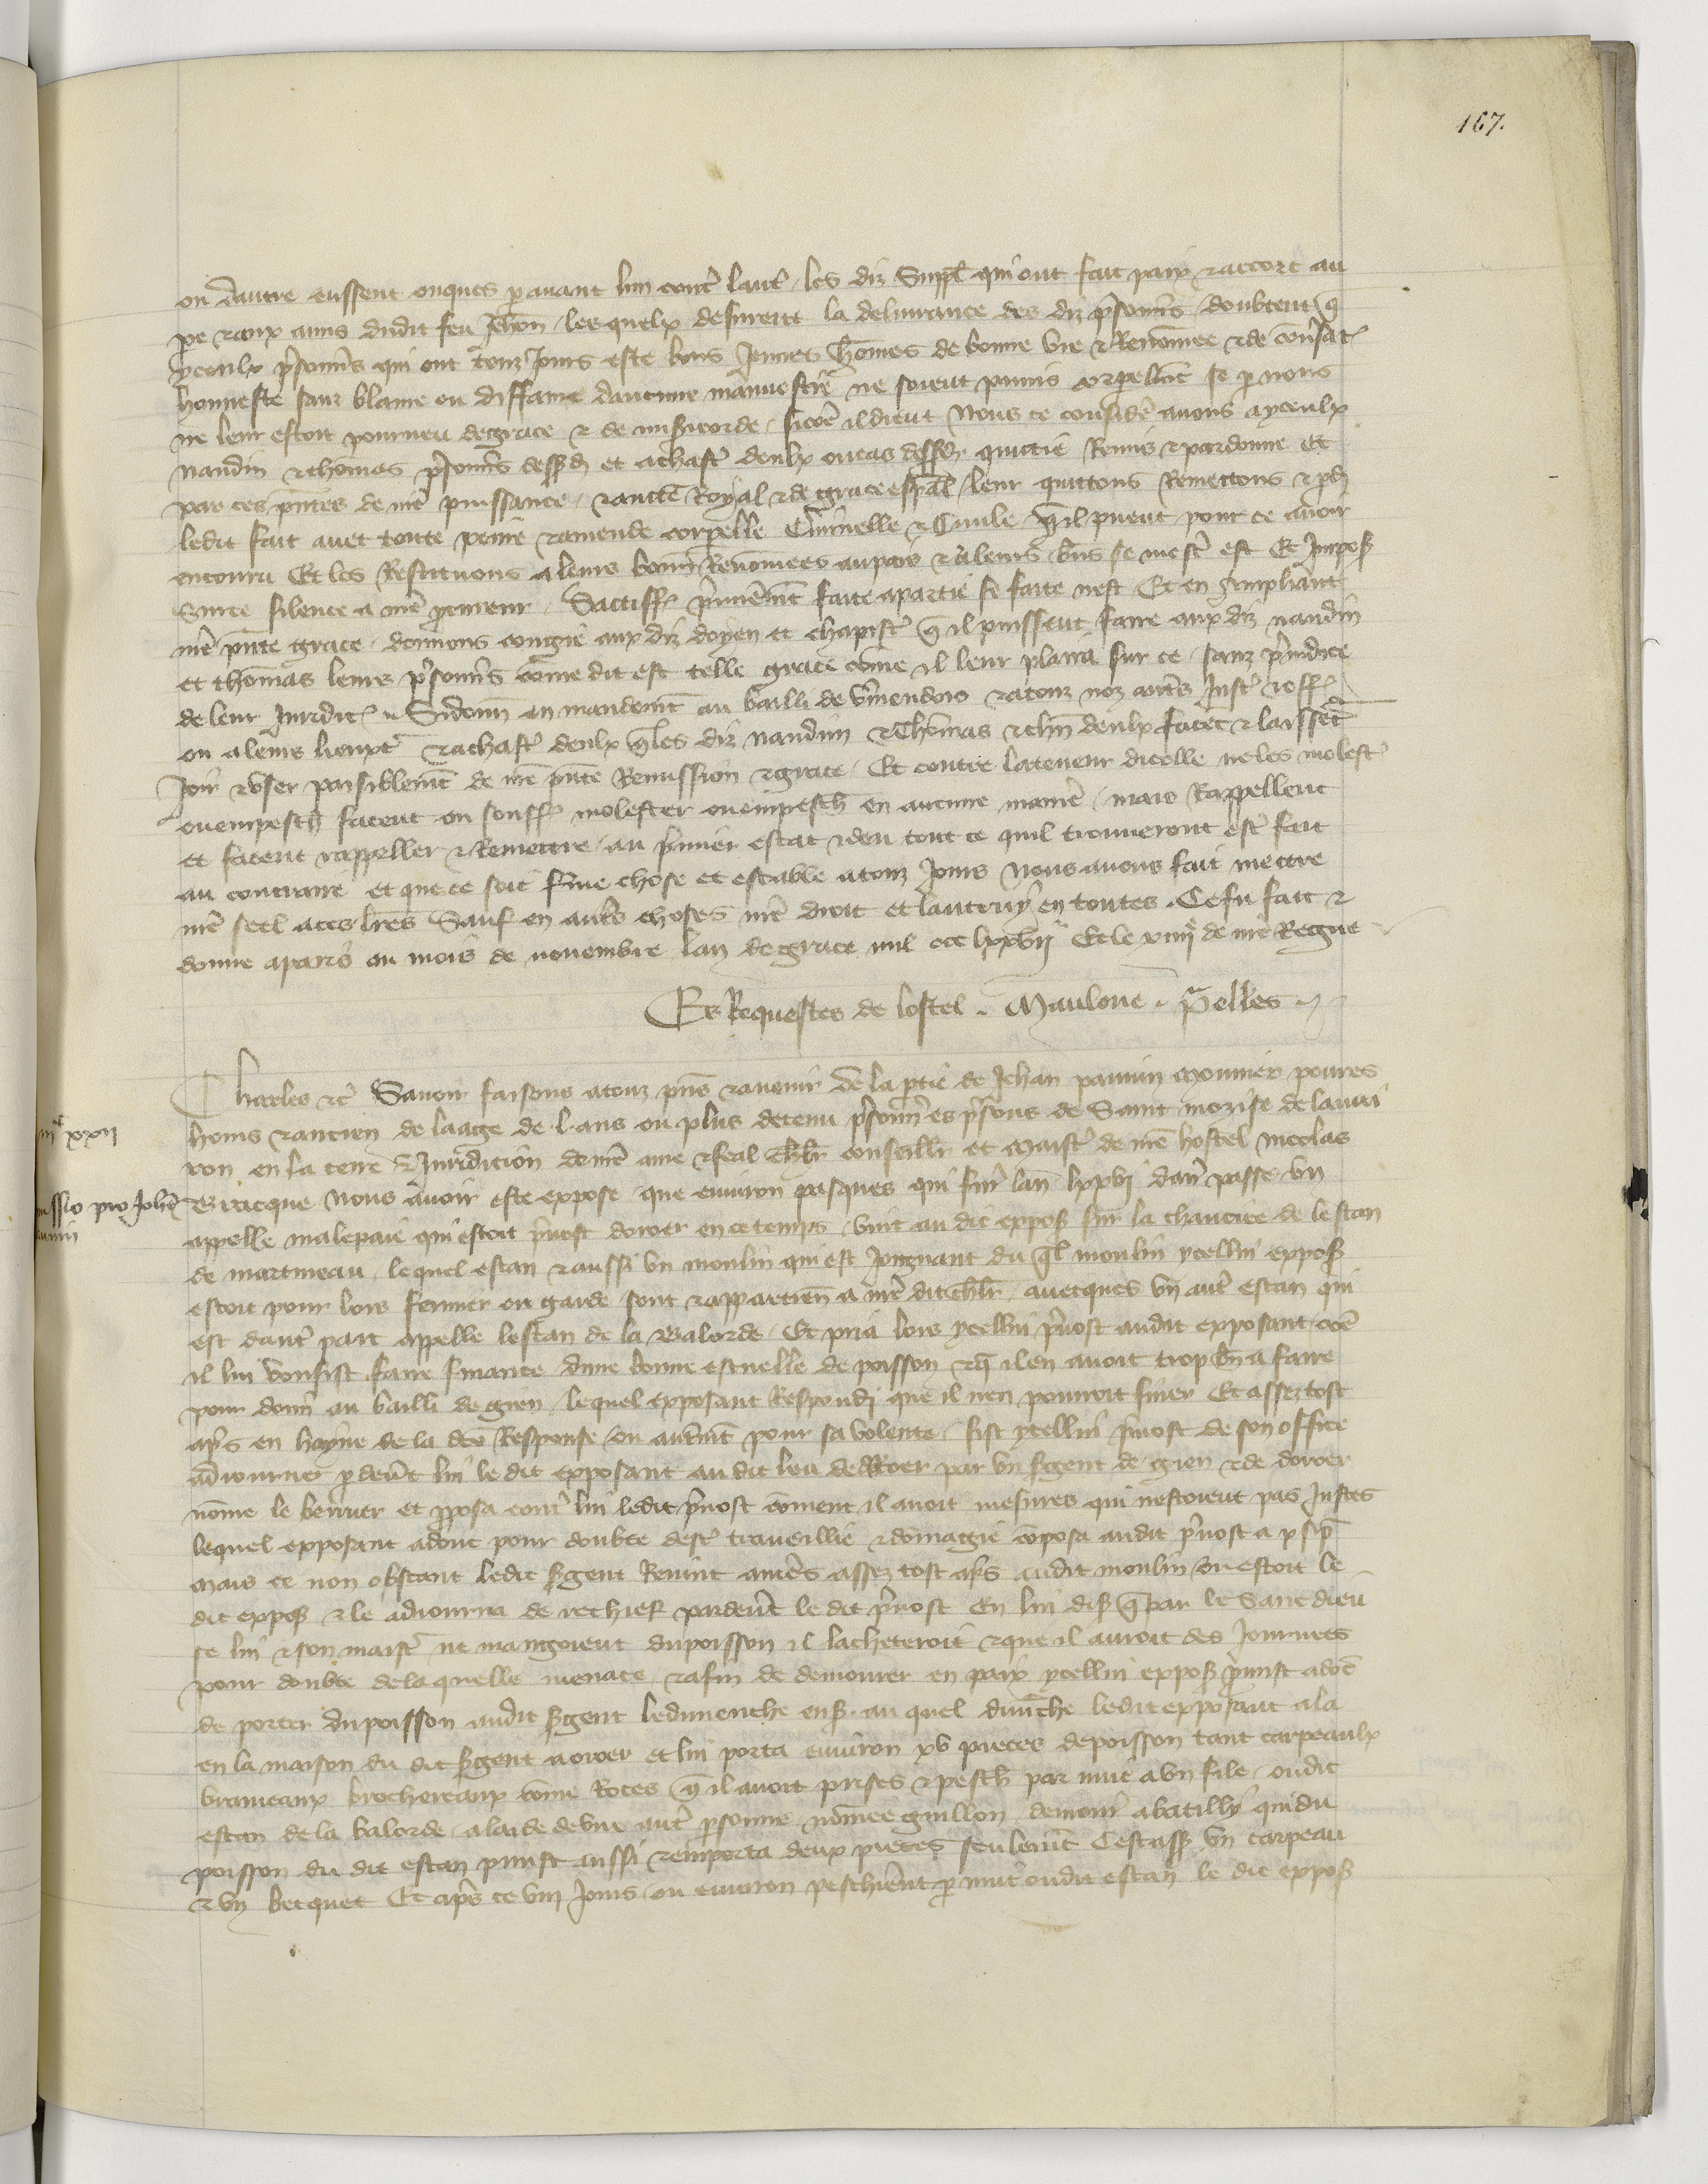 167.
ou dautre eussent onques p avant lun contr laut, les diz Suppl qui ont fait paix & accort au
pe & aux amis dudit feu Jehan, lesquelx desirent la delivrance des diz prisonn, doubtent q
yceulx prisonn qui ont touz Jours este bons Jeunes hommes de bonne vie & Renommee & de convsac
honneste sanz blame ou diffame daucun ne soient punis corpelmt se p nous
ne leur estoit pourveu de grace & de misicorde, sicoe il dient Nous ce considr avons a yceulx
naudin & thomas prisonns dessd et achastr deulx ou cas dessd, quictie Remis & pardonne Et
par ces pntes de nre puissance & auctte Royal & de grace espal, leur quittons Remettons & pd
ledit fait avec toute peine & amende corpelle Criminelle & Civile q il pueut pour ce avoir
encouru Et les Restituons a leurs bonn Renommees au pais & a leurs bns se mestr est Et Imposs
Surce silence a nre procureur, Satisff pmieremt faite a partie se faite nest Et en Ampliant
nre pnte grace, donnons congie aux diz doyen et chapistr q il puissent faire aux diz naudin
et thomas leurs prisonns comme dit est telle grace comme il leur plaira sur ce, sanz preiudice
de leur Juridic Sidonn en mandemt au bailli de vmendois & a touz noz autrs Justic & off
ou a leurs lieuxtn & a chastr deulx q les diz naudin & Thomas & chn deulx facet & laissent
Joir & user paisiblemt de nre pnte Remission & grace, Et contre la teneur dicelle ne les molestr
ou empesch facent ou souffr molester ou empesch en aucune manre, mais Rappellent
et facent rappeller & Remettre au pmier estat & deu tout ce quil trouveront estr fait
au contraire et que ce soit ferme chose et estable a touz Jours Nous avons fait mettre
nre seel a ces lres Sauf en autrs choses nre droit et lautruy en toutes. Ce fu fait &
donne a paris ou mois de novembre lan de grace mil ccc lxxvij Et le xiiij de nre Regne
Es Requestes de lostel. Maulone. Prelles
iijc xxij
ssio pro Johe
Charles &c Savoir faisons a touz pns & avenir De la ptie de Jehan pamin monnier poures
homs & ancien de laage de .l. ans ou plus detenu prisonn es prisons de Saint morise de lavai
ron en la terre & Juridicion de nre ame & feal Chlr conseillr et maistr de nre hostel nicolas
Bracque nous avoir este expose, que environ pasques qui furt lan lxxvj darr passe un
appelle malepaie qui estoit prevost doroer en ce temps, vint au dit exposs sur la chaucee de lestan
de martineau, lequel estan & aussi un moulin qui est Joingnant du ql moulin ycellui exposs
estoit pour lors fermier ou garde sont & appartien a nre dit chlr, avecques un autr estan qui
est dautr part appelle lestan de la Balorde, Et pria lors ycellui prevost audit exposant coe
il lui vousist faire finance dune bonne escuelle de poisson & q il en avoit trop bn a faire
pour donn au bailli de gien, lequel exposant Respondi que il nen pourroit finer Et assez tost
aprs en hayne de la dce Response ou autremt pour sa volente, fist ycellui prevost de son office
adiourner p devt lui le dit exposant au dit lieu de Oroer par un Sgent de gien & de doroer
nomme le berruier et pposa contr lui ledit prevost comment il avoit mesures qui nestoient pas Justes
lequel exposant adonc pour doubte destr travaillie & dommagie composa audit prevost a x s p
Mais ce non obstant ledit Sgent Revint assez tost aprs audit moulin ou estoit le
dit exposs & le adiourna de rechief pardevt le dit prevost En lui dis q par le Sanc dieu
se lui & son maistr ne mangoient du poisson il lacheteroit & que il auroit des Journees
pour doubte de laquelle menace & afin de demourer en paix ycellui exposs pmist adonc
de porter du poisson audit Sgent le dimenche ens, au quel dimche ledit exposant ala
en la maison du dit Sgent a oroer et lui porta environ xv pieces de poisson tant carpeaulx
brameaux brochereaux comme Roces q il avoit prises & pesch par nuit a un file oudit
estan de la balorde, a laide dune autr psonne nommee guillon demour a batilly qui du
poisson du dit estan prinst aussi & emporta deux pieces seulemt Cestass un carpeau
& un becquet Et aprs ce viij Jours ou environ peschierent p nuit oudit estan le dit exposs